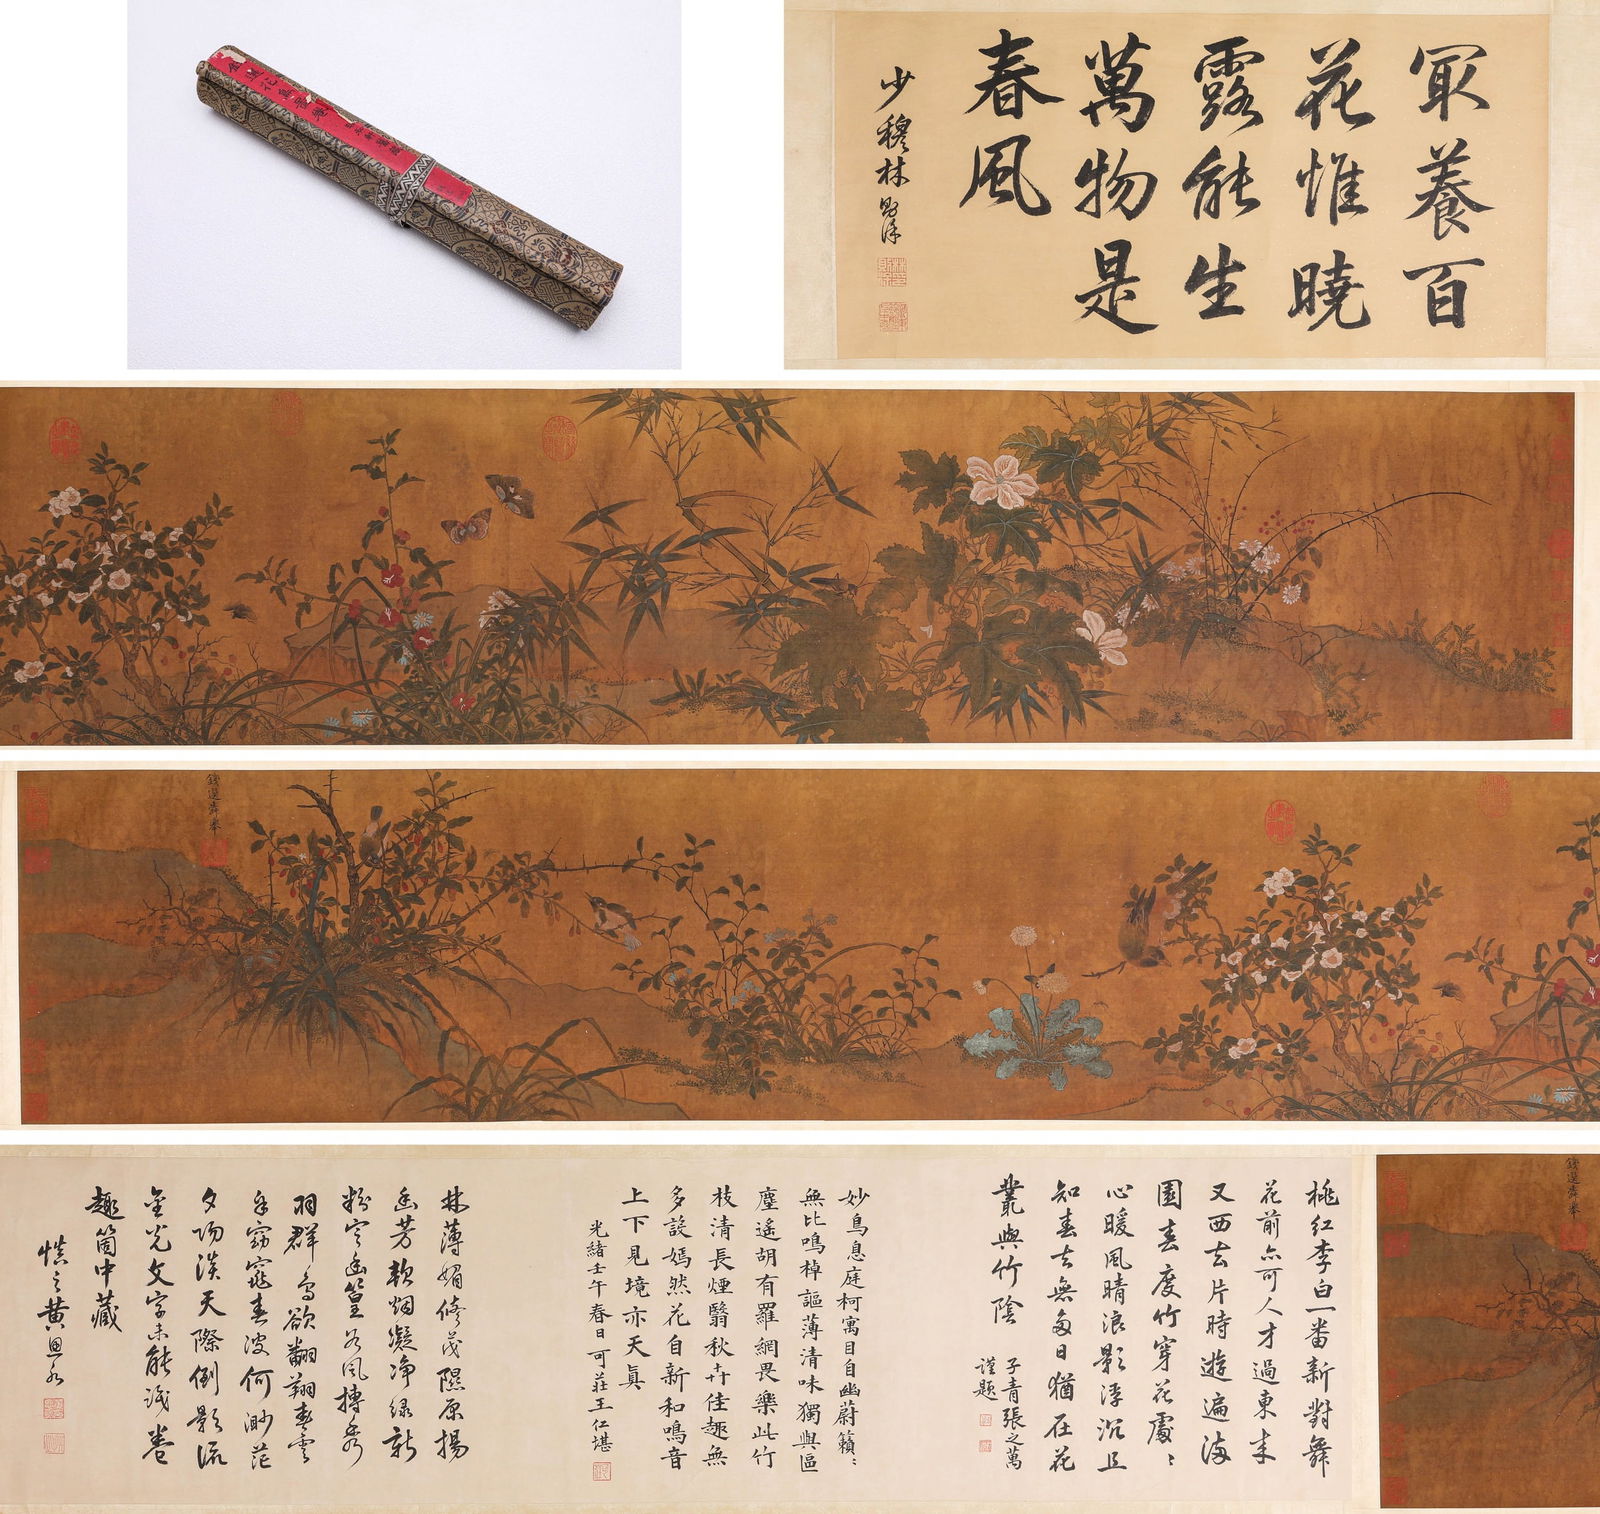 㝡養百
花惟曉
露能生
萬物是
春風
少穆林則徐
錢選舜舉
桃紅李白一番新對舞
花前亦可人才過東來
又西去片時遊遍海
園春度竹穿花處〻
心暖風晴浪影浮沉且
知春去無多日猶在花
叢與竹陰
子青張之萬
謹題
妙鳥息庭柯寓目自幽蔚籟〻
無比鳴棹謳薄清味獨與區
塵遙胡有羅網畏樂此竹
枝清長煙翳秋卉佳趣無
多設嫣然花自新和鳴音
上下見境亦天真
光緒壬午春日可莊王仁堪
林薄媚脩茂隰原揚
幽芳軟烟凝净綠新
粉定幽篁谷風摶秀
羽群鳥欲翻翔春雲
自窈窕春波何渺茫
夕陽淡天際倒影流
金光文字未能識卷
趣箇中藏
慎之黄思永
錢選舜舉